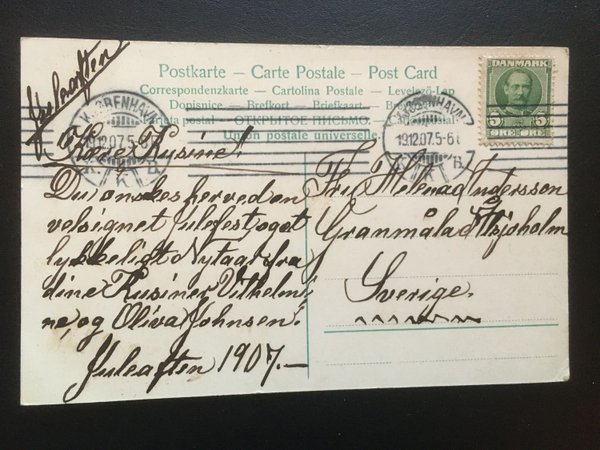 Juleaften
Postkarte – Carte Postale – Post Card
Correspondenzkarte – Cartolina Postale – Levelező-Lap
Dopisnice – Brefkort – Briefkaart –
postale
ОТКРЫТОЕ ПИСЬМО.
Union postale universelle.
KJØBENHAVN
19.12.07.5-6
KJØBENHAVN
19.12.07.5-6
DANMARK
5 5
ØRE
Kære Kusine!
Du ønskes herved en
velsignet Julefest og et
lykkeligt Nytaar fra
dine Kusiner Vilhelmi
ne, og Oliva Johnsen.
Juleaften 1907.–
Frk Helena Andersson
Granmåla
Sverige.